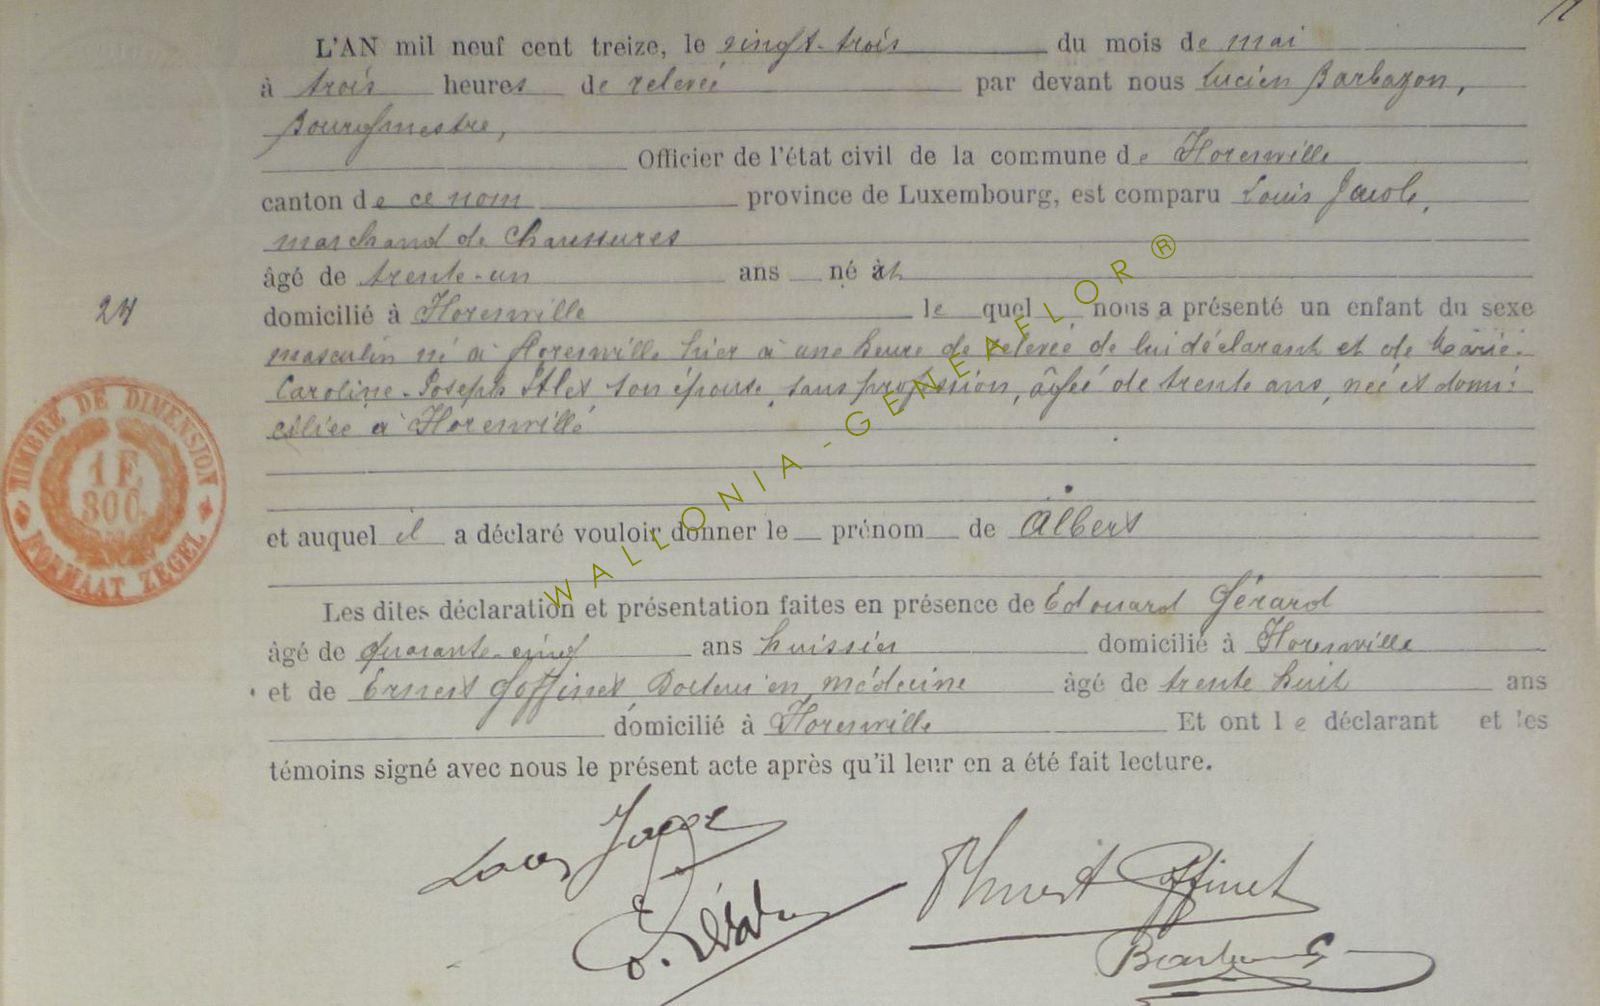 L'AN mil neuf cent treize, le vingt-trois du mois de mai
à trois heures de relevée par devant nous Lucien Barbazon,
Bourgmestre,
Officier de l'état civil de la commune de Florenville
canton de ce nom province de Luxembourg, est comparu Louis
marchand de chaussures
âgé de trente-un ans né à
24
domicilié à Florenville lequel nous a présenté un enfant du sexe
masculin né à Florenville hier à une heure de relevée de lui déclarant et de Marie-
Caroline-Joseph son épouse, sans profession, âgée de trente ans, née et domi-
ciliée à Florenville
TIMBRE DE DIMENSION
1 F.
300.
FORMAAT ZEGEL
et auquel il a déclaré vouloir donner le prénom de Albert
Les dites déclaration et présentation faites en présence de Edouard Gérard
âgé de quarante-cinq ans huissier domicilié à Florenville
et de Ernest Goffinet Docteur en médecine âgé de trente huit ans
domicilié à Florenville Et ont le déclarant et les
témoins signé avec nous le présent acte après qu'il leur en a été fait lecture.
Ernest Goffinet
WALLONIA - GENEAFLOR ®